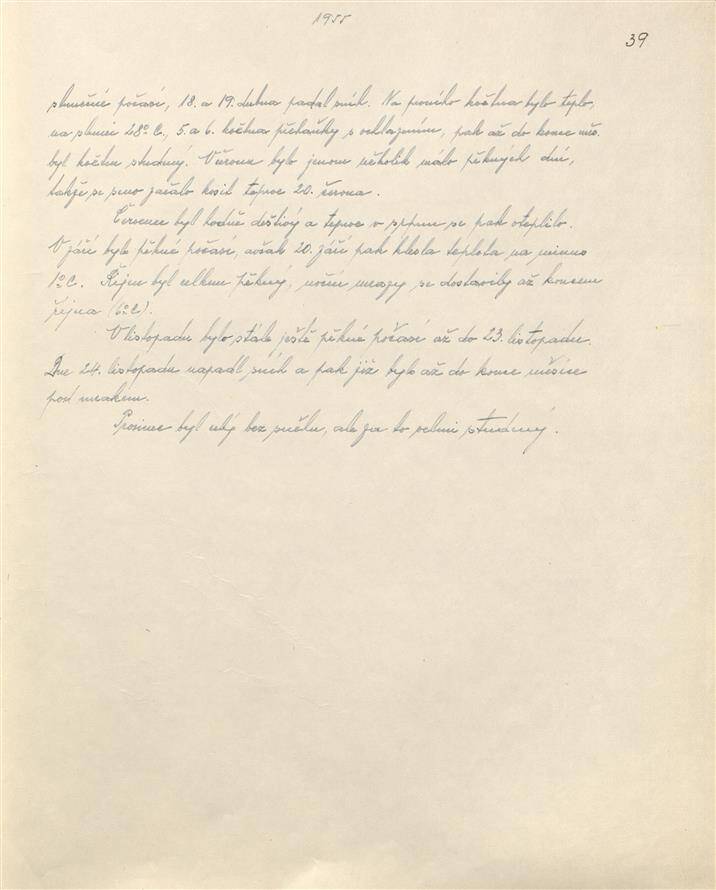 1955
39
slunečné počasí, 18. a 19. dubna padal sníh. Na prvního května bylo teplo,
na slunci 28° C, 5. a 6. května přeháňky s ochlazením, pak až do konce měs.
byl květen studený. V červnu bylo jenom několik málo pěkných dní,
takže se seno začalo kosit teprve 20. června.
Červenec byl hodně deštivý a teprve v srpnu se pak oteplilo.
V září bylo pěkné počasí, avšak 20. září pak klesla teplota na minus
1° C. Říjen byl celkem pěkný, noční mrazy se dostavily až koncem
října (6° C).
V listopadu bylo stále ještě pěkné počasí až do 23. listopadu.
Dne 24. listopadu napadl sníh a pak již bylo až do konce měsíce
pod mrakem.
Prosinec byl celý bez sněhu, ale za to velmi studený.